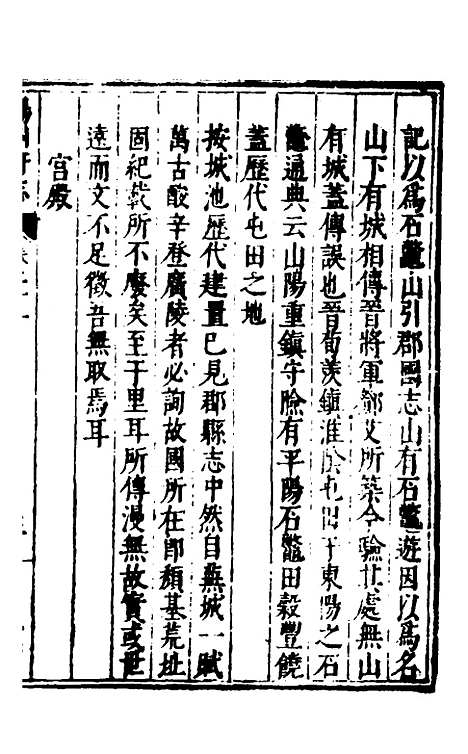 記以為石鼈山引郡國志山有石鼈遊因以為名
山下有城相傳晉將軍鄧艾所築今驗其處無山
有城蓋傳誤也晉荀羨鎮淮陰屯田于東陽之石
鼈通典云山陽重鎮守險有平陽石鼈田穀豐饒
蓋歷代屯田之地
按城池歷代建置已見郡縣志中然自蕪城一賦
萬古酸辛登廣陵者必詢故國所在即頹基荒址
固紀載所不廢矣至于里耳所傳漫無故實或世
遠而文不足徵吾無取焉耳
宮殿